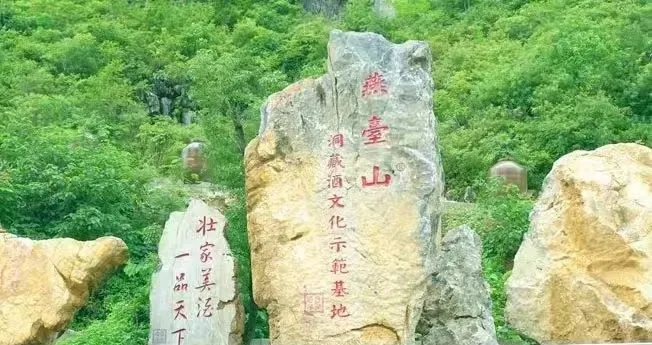 燕臺山®
洞藏酒文化示範基地
壮家美酒
一品天下